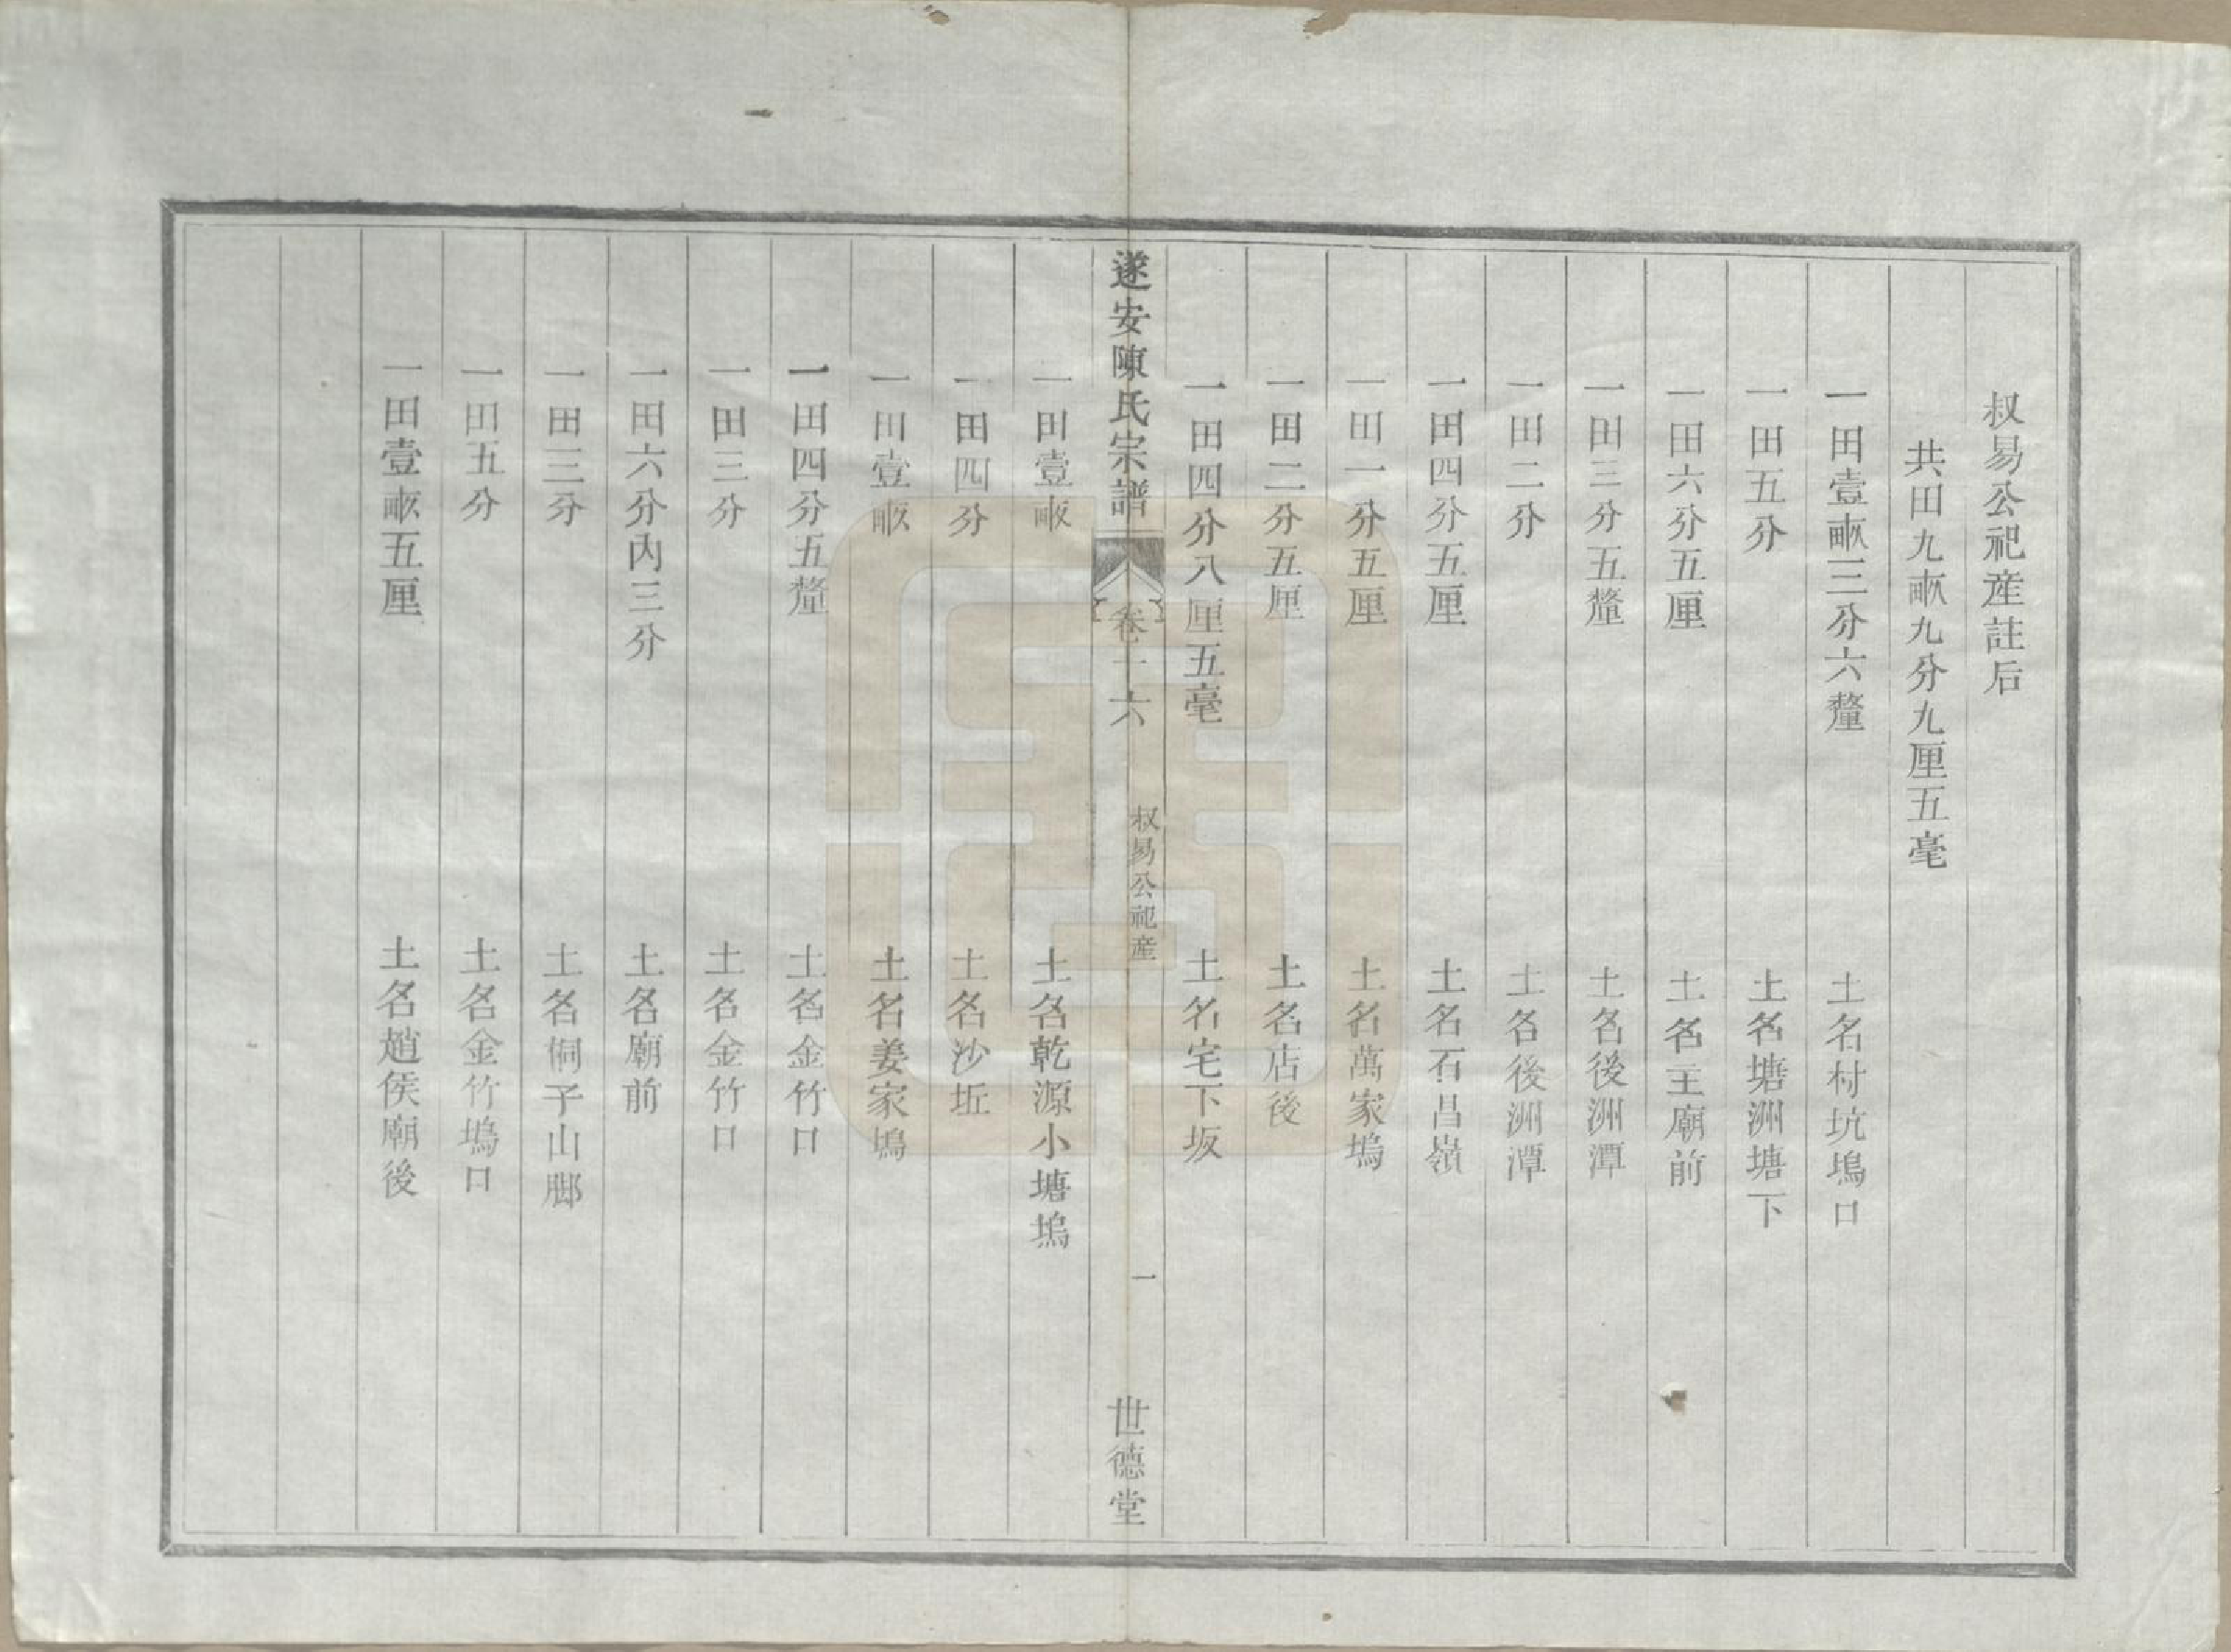 叔易公祀産註后
共田九畝九分九厘五毫
一田壹畝三分六釐　土名村坑塢口
一田五分　土名塘洲塘下
一田六分五厘　土名主廟前
一田三分五釐　土名後洲潭
一田二分　土名後洲潭
一田四分五厘　土名石昌嶺
一田一分五厘　土名萬家塢
一田二分五厘　土名店後
一田四分八厘五毫　土名宅下坂
遂安陳氏宗譜　卷十六　叔易公祀産　一　世德堂
一田壹畝　土名乾源小塘塢
一田四分　土名沙坵
一田壹畝　土名姜家塢
一田四分五釐　土名金竹口
一田三分　土名金竹口
一田六分內三分　土名廟前
一田三分　土名侗子山脚
一田五分　土名金竹塢口
一田壹畝五厘　土名趙侯廟後